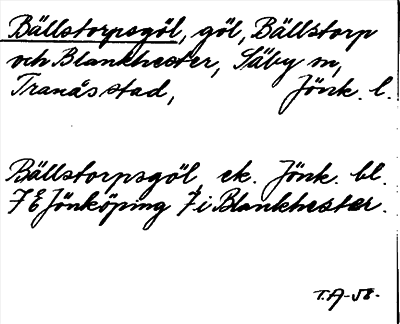 Bällstorpsgöl, göl, Bällstorp
och Blankhester, Säby sn,
Tranås stad, Jönk. l.
Bällstorpsgöl ek. Jönk. bl.
7 E Jönköping 7 i Blankhester.
T.A-58-